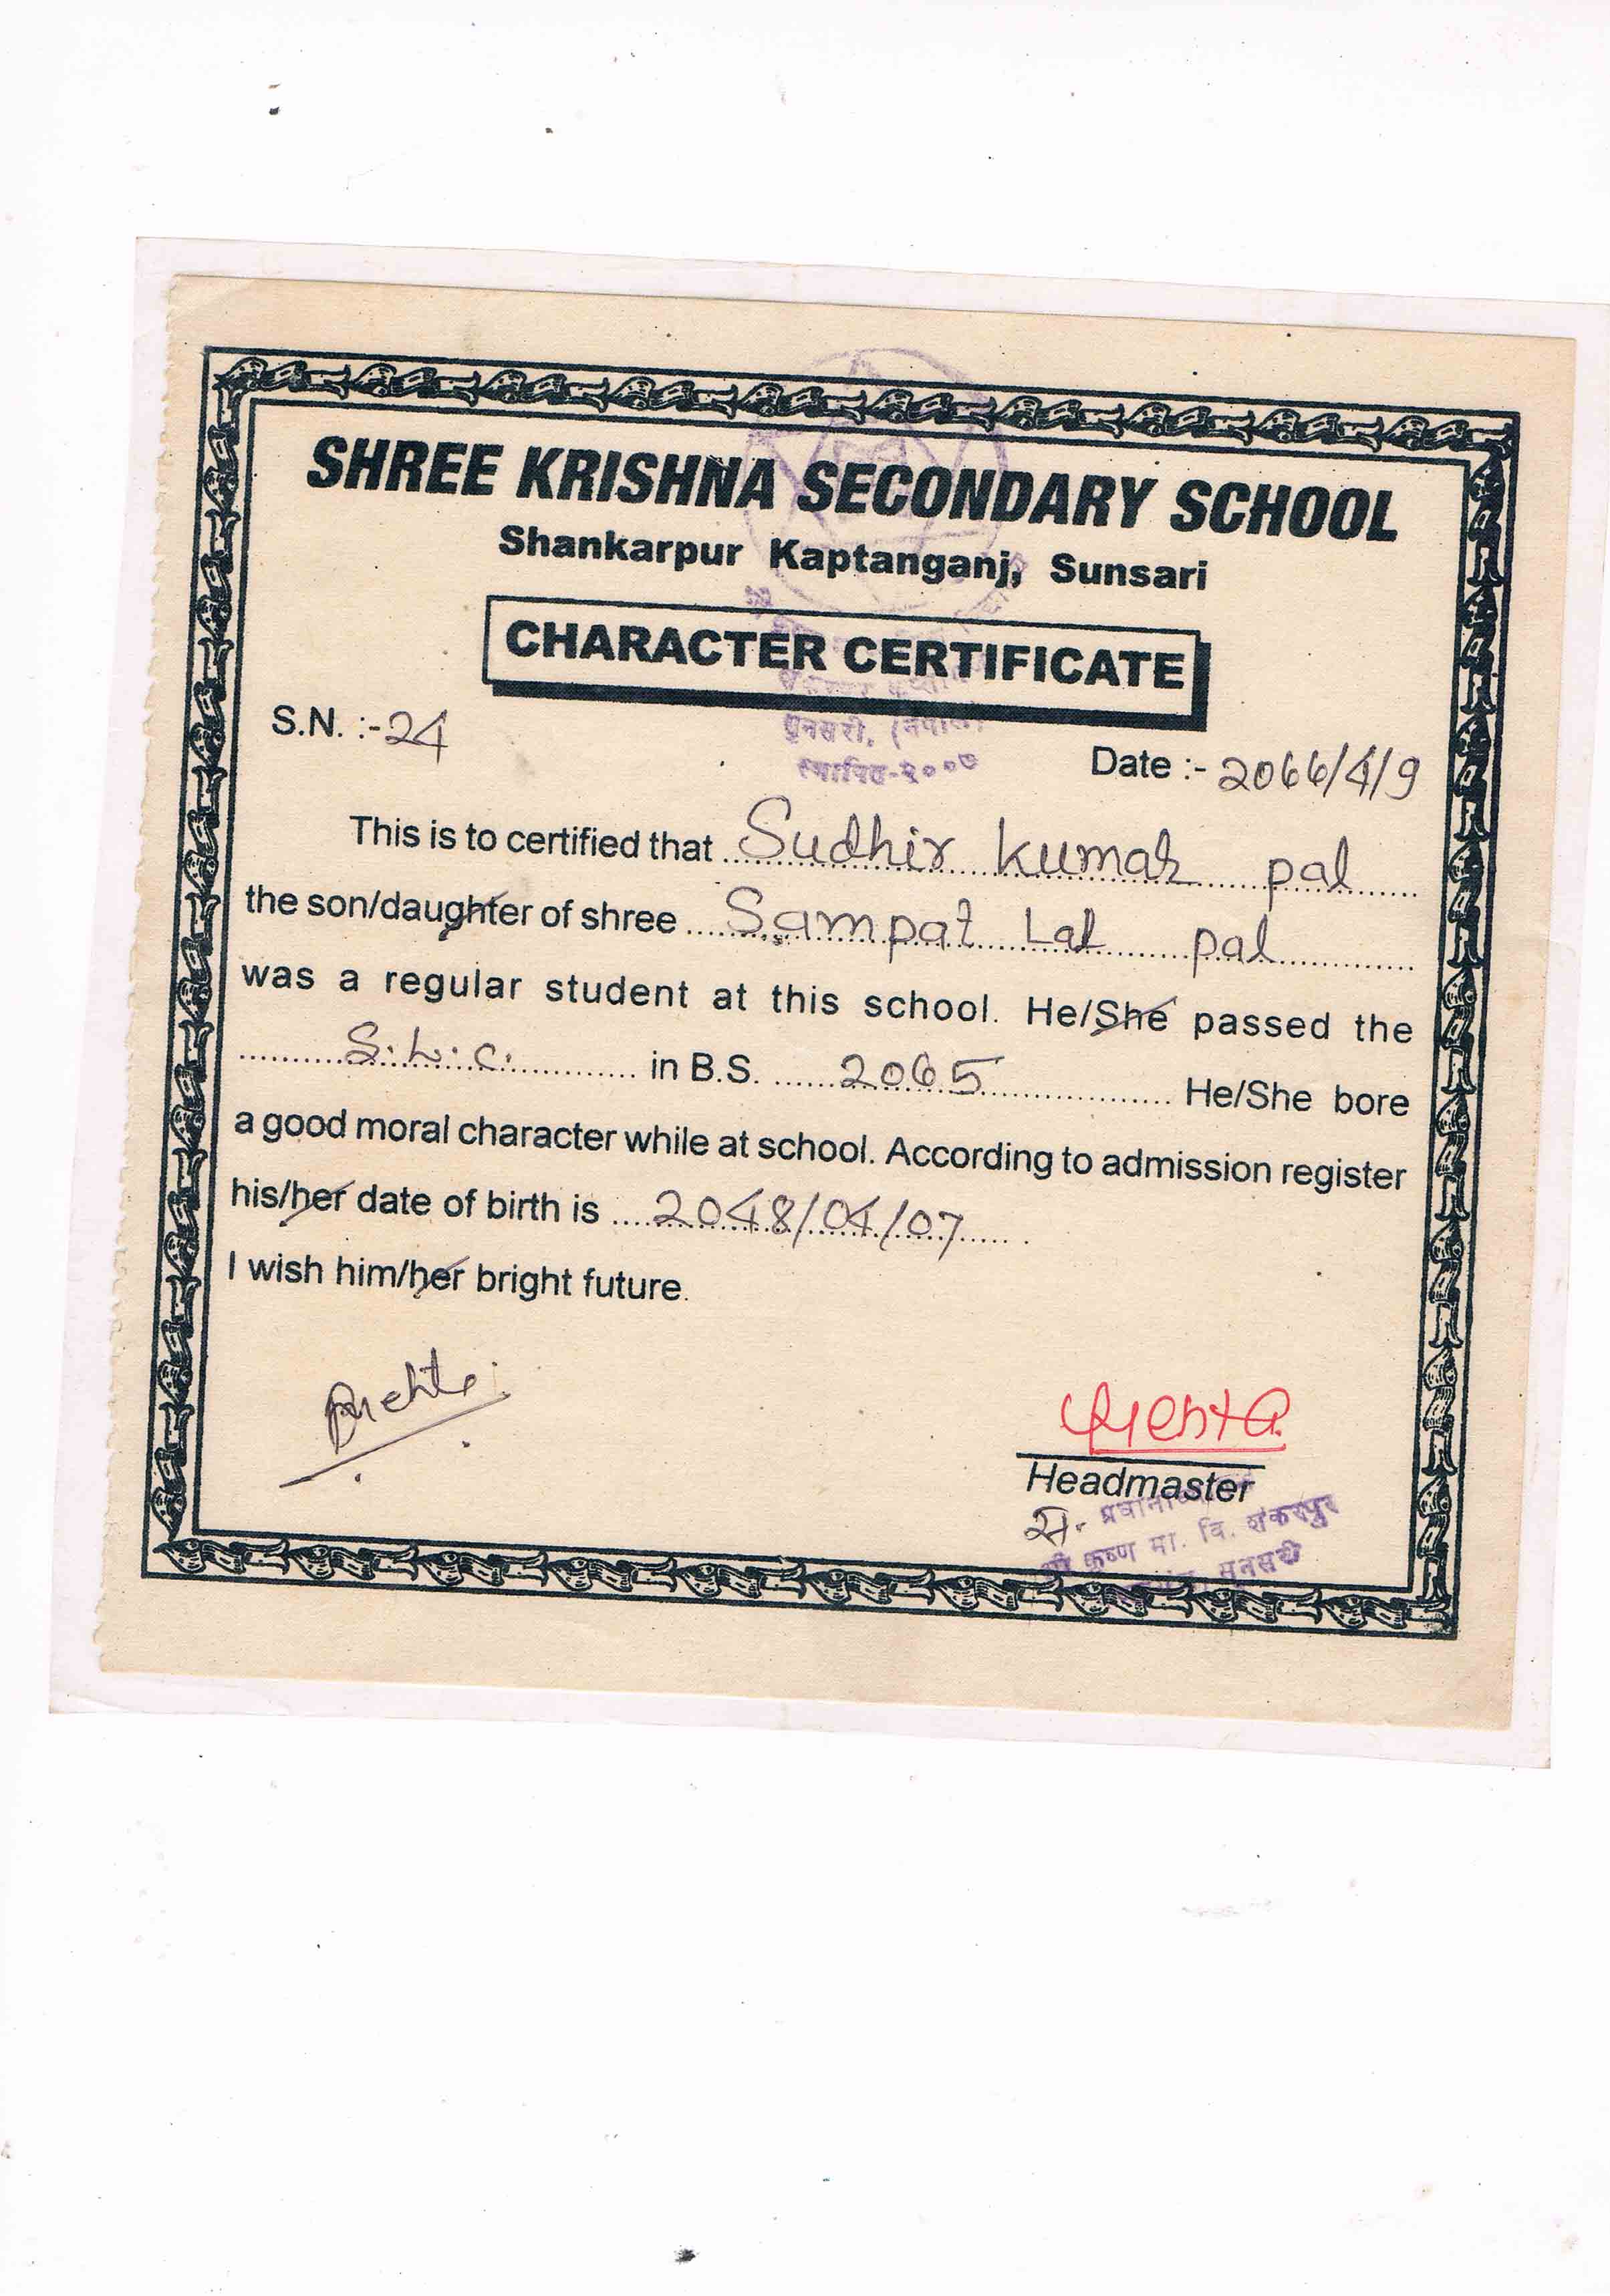 SHREE KRISHNA SECONDARY SCHOOL
Shankarpur Kaptanganj, Sunsari
CHARACTER CERTIFICATE
सुनसरी, (नेपाल)
स्थापित-२००७
S.N. :-24
Date :- 2066/4/9
This is to certified that Sudhir kumar pal
the son/daughter of shree Sampat Lal pal
was a regular student at this school. He/She passed the
S.L.C. in B.S. 2065 He/She bore
a good moral character while at school. According to admission register
his/her date of birth is 2048/04/07
I wish him/her bright future.
Mehta
Mehta
Headmaster
स. प्रधानाध्यापक
श्री कृष्ण मा. वि. शंकरपुर
सुनसरी